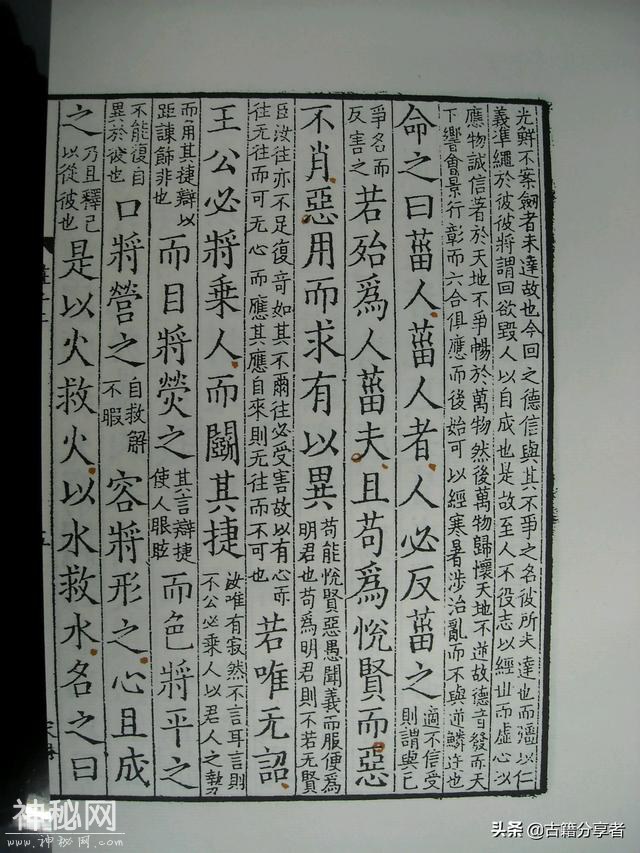 光鮮不案劒者未達故也今回之德信與其不爭之名彼所未達也而彊以仁
義準繩於彼彼將謂回欲毀人以自成也是故至人不役志以經世而虛心以
應物誠信著於天地不爭暢於萬物然後萬物歸懷天地不逆故德音發而天
下響會景行彰而六合俱應而後始可以經寒暑涉治亂而不與逆鱗迕也
命之曰菑人菑人者人必反菑之適不信受則謂與己
爭名而反害之若殆爲人菑夫且苟爲恱賢而惡
不肖惡用而求有以異苟能恱賢惡愚聞義而服便爲明君也苟爲明君則不若无賢
臣汝往亦不足復奇如其不爾往必受害故以有心而往无往而可无心而應其應自來則无往而不可也若唯无詔
王公必將乘人而鬭其捷汝唯有寂然不言耳言則不公必乘人以君人之勢
而角其捷辯以距諫飾非也而目將熒之其言辯捷使人眼眩而色將平之
不能復自異於彼也口將營之自救解不暇容將形之心且成
之乃且釋己以從彼也是以火救火以水救水名之曰
神秘网
www.神秘网.com
头条 @古籍分享者